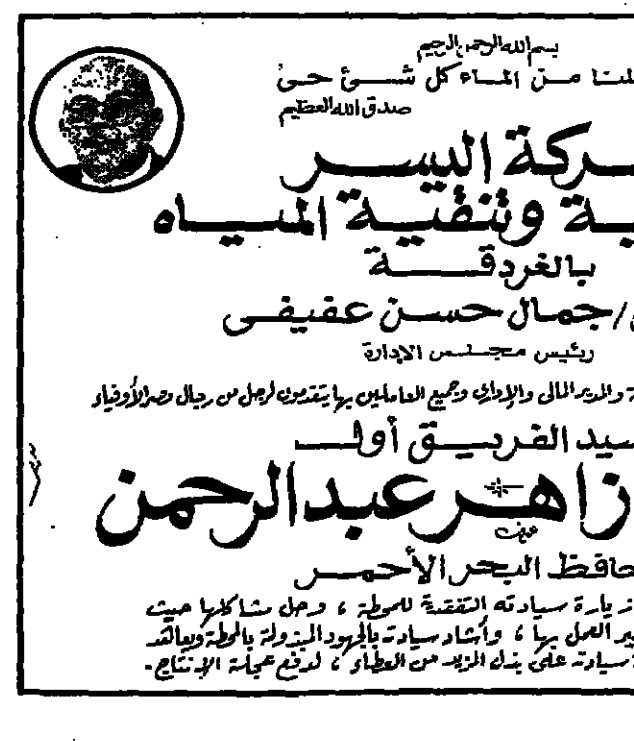 بسم الله الرحمن الرحيم
لنا من الماء كل شئ حى
صدق الله العظيم
ركة اليسر
ية وتنقية المياه
بالغردقة
/جمال حسن عفيفى
رئيس مجلس الإدارة
ة والمدير المالى والإدارى وجميع العاملين بها يتقدمون لرجل من رجال مصر الأوفياء
سيد الفريق أول
زاهر عبد الرحمن
حافظ البحر الأحمر
زيارة سيادته التفقدية للمحطة ، وحل مشاكلها حيث
ير العمل بها ، وأشاد سيادته بالجهود المبذولة بالمحطة
سيادته على بذل المزيد من العطاء ، لدفع عجلة الإنتاج .